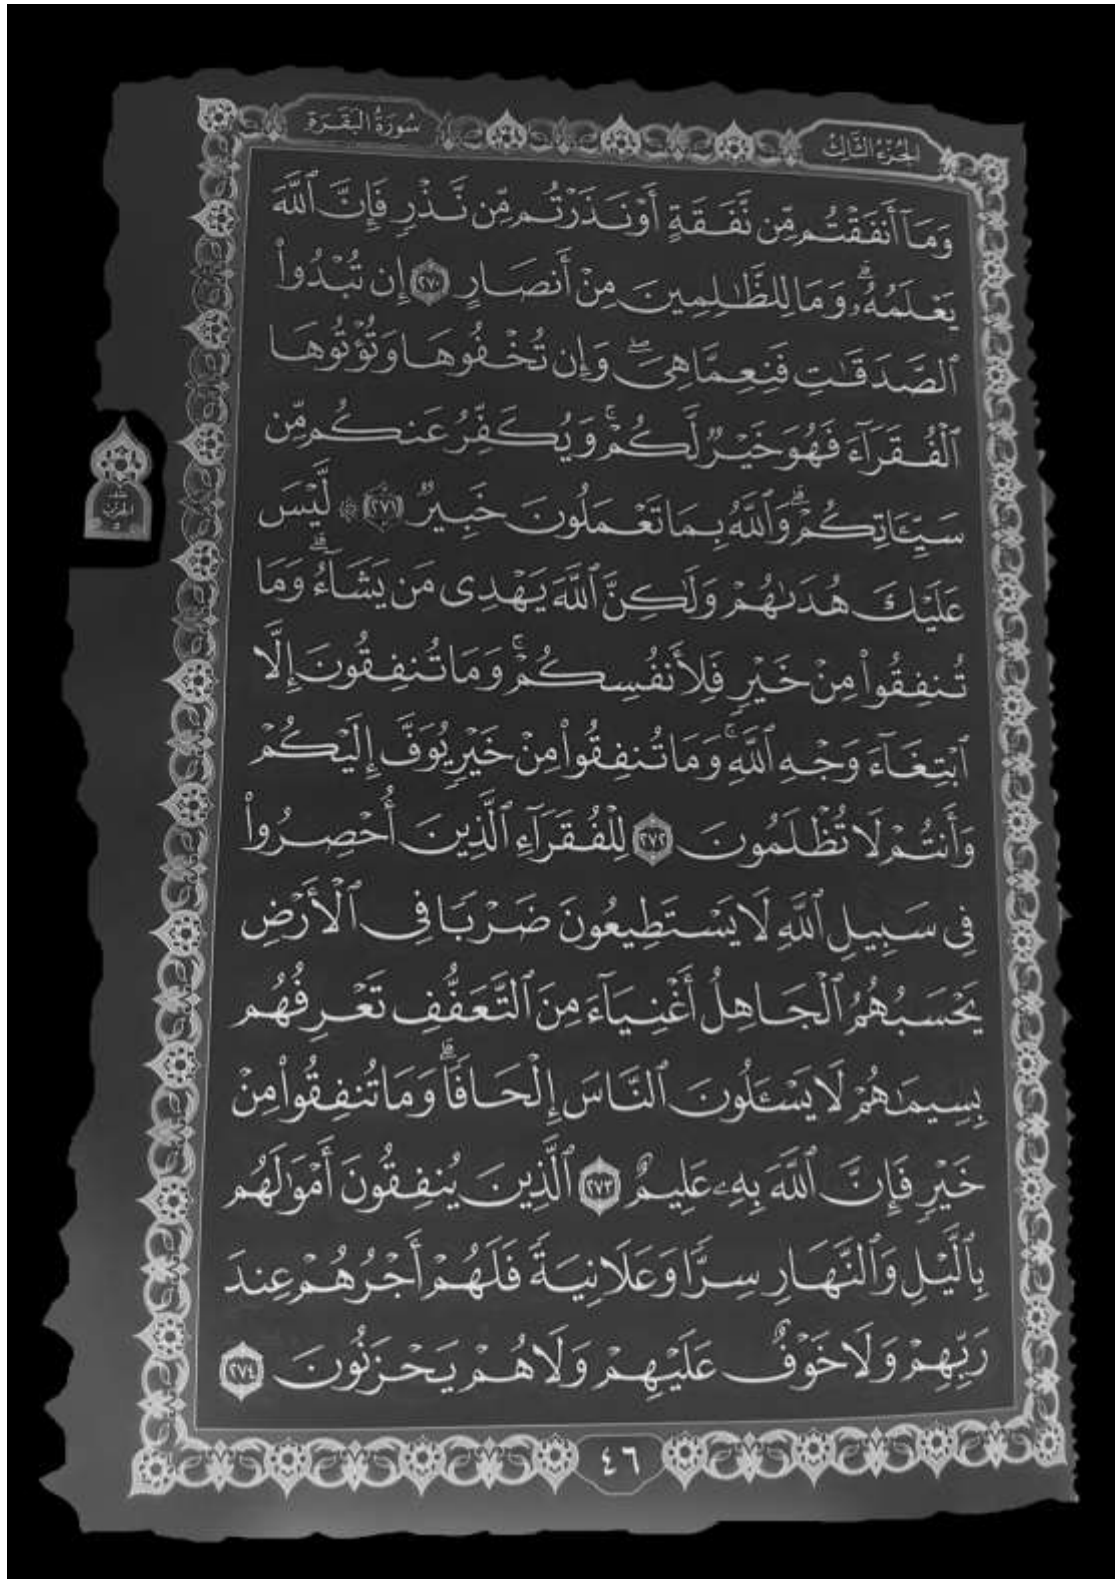 الجزء الثالث
سورة البقرة
وَمَآ أَنفَقْتُم مِّن نَّفَقَةٍ أَوْ نَذَرْتُم مِّن نَّذْرٍ فَإِنَّ ٱللَّهَ
يَعْلَمُهُۥ ۗ وَمَا لِلظَّٰلِمِينَ مِنْ أَنصَارٍ ٢٧٠ إِن تُبْدُوا۟
ٱلصَّدَقَٰتِ فَنِعِمَّا هِىَ ۖ وَإِن تُخْفُوهَا وَتُؤْتُوهَا
ٱلْفُقَرَآءَ فَهُوَ خَيْرٌ لَّكُمْ ۚ وَيُكَفِّرُ عَنكُم مِّن
سَيِّـَٔاتِكُمْ ۗ وَٱللَّهُ بِمَا تَعْمَلُونَ خَبِيرٌ ٢٧١ ۞ لَّيْسَ
عَلَيْكَ هُدَىٰهُمْ وَلَٰكِنَّ ٱللَّهَ يَهْدِى مَن يَشَآءُ ۗ وَمَا
تُنفِقُوا۟ مِنْ خَيْرٍ فَلِأَنفُسِكُمْ ۚ وَمَا تُنفِقُونَ إِلَّا
ٱبْتِغَآءَ وَجْهِ ٱللَّهِ ۚ وَمَا تُنفِقُوا۟ مِنْ خَيْرٍ يُوَفَّ إِلَيْكُمْ
وَأَنتُمْ لَا تُظْلَمُونَ ٢٧٢ لِلْفُقَرَآءِ ٱلَّذِينَ أُحْصِرُوا۟
فِى سَبِيلِ ٱللَّهِ لَا يَسْتَطِيعُونَ ضَرْبًا فِى ٱلْأَرْضِ
يَحْسَبُهُمُ ٱلْجَاهِلُ أَغْنِيَآءَ مِنَ ٱلتَّعَفُّفِ تَعْرِفُهُم
بِسِيمَٰهُمْ لَا يَسْـَٔلُونَ ٱلنَّاسَ إِلْحَافًا ۗ وَمَا تُنفِقُوا۟ مِنْ
خَيْرٍ فَإِنَّ ٱللَّهَ بِهِۦ عَلِيمٌ ٢٧٣ ٱلَّذِينَ يُنفِقُونَ أَمْوَٰلَهُم
بِٱلَّيْلِ وَٱلنَّهَارِ سِرًّا وَعَلَانِيَةً فَلَهُمْ أَجْرُهُمْ عِندَ
رَبِّهِمْ وَلَا خَوْفٌ عَلَيْهِمْ وَلَا هُمْ يَحْزَنُونَ ٢٧٤
الحزب
٥
٤٦